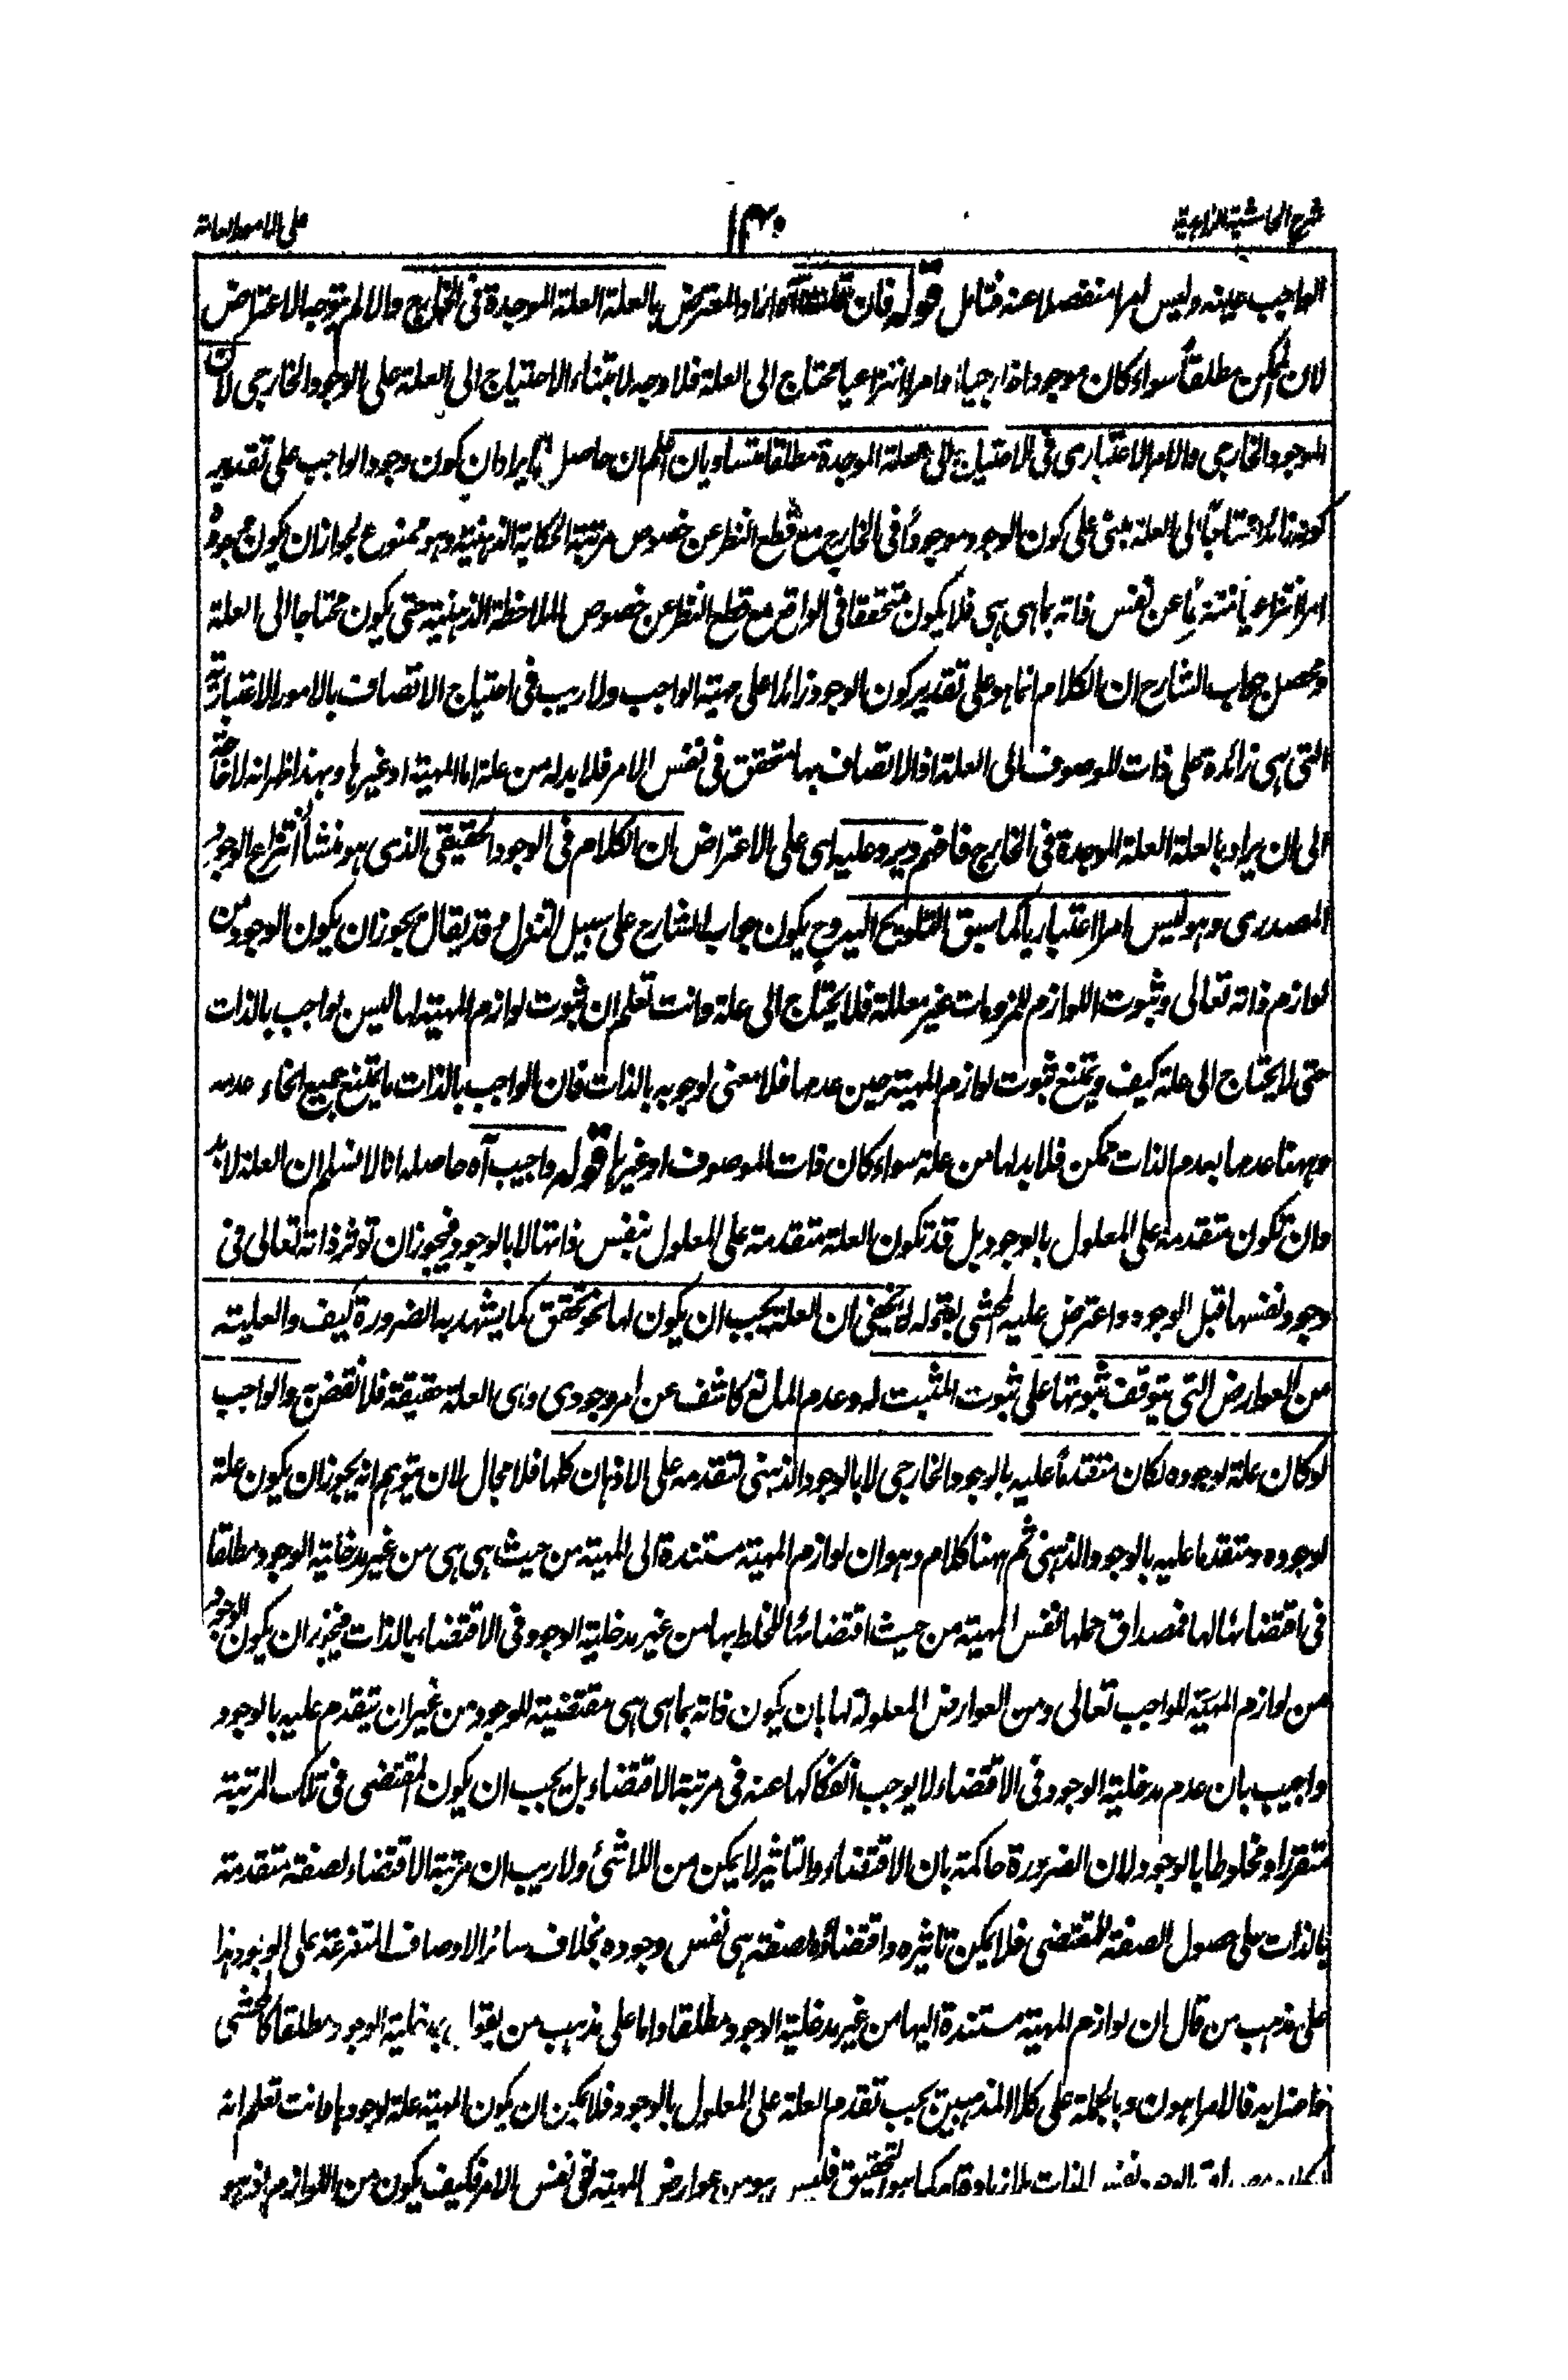 شرح الحاشية الزاهدية
١٣٠
على الامور العامة
الواجب عينه وليس امرا منفصلا عنه فتامل قوله فان اراد المعترض بالعلة العلة الموجدة فى الخارج والا لم يتوجه الاعتراض
لان الممكن مطلقا سواء كان موجودا خارجيا او امرا انتزاعيا محتاج الى العلة فلا وجه لابتناء الاحتياج الى العلة على الوجود الخارجى لان
الموجود الخارجى والامر الاعتبارى فى الاحتياج الى العلة الموجدة مطلقا متساويان اعلم ان حاصل الايراد ان كون وجود الواجب على تقدير
كونه زائدا محتاجا الى العلة مبنى على كون الوجود موجودا فى الخارج مع قطع النظر عن خصوص مرتبة الحكاية الذهنية وهو ممنوع لجواز ان يكون وجوده
امرا انتزاعيا منتزعا عن نفس ذاته بما هى هى فلا يكون متحققا فى الواقع مع قطع النظر عن خصوص الملاحظة الذهنية حتى يكون محتاجا الى العلة
ومحصل جواب الشارح ان الكلام انما هو على تقدير كون الوجود زائدا على مهية الواجب ولا ريب فى احتياج الاتصاف بالامور الاعتبارية
التى هى زائدة على ذات الموصوف الى العلة اذ الاتصاف بها متحقق فى نفس الامر فلا بد له من علة اما المهية او غيرها وبهذا ظهر انه لا حاجة
الى ان يراد بالعلة العلة الموجدة فى الخارج فافهم ويرد عليه اى على الاعتراض ان الكلام فى الوجود الحقيقى الذى هو منشأ انتزاع الوجود
المصدرى وهو ليس امرا اعتباريا كما سبق التلويح اليه وح يكون جواب الشارح على سبيل التنزل وقد يقال يجوز ان يكون الوجود من
لوازم ذاته تعالى وثبوت اللوازم للملزومات غير معللة فلا يحتاج الى علة وانت تعلم ان ثبوت لوازم المهية لها ليس بواجب بالذات
حتى لا يحتاج الى علة كيف ويمتنع ثبوت لوازم المهية حين عدمها فلا معنى لوجوبه بالذات فان الواجب بالذات ما يمتنع جميع انحاء عدمه
وههنا عدمها بعدم الذات ممكن فلا بد لها من علة سواء كان ذات الموصوف او غيرها قوله واجيب آه حاصله انا لا نسلم ان العلة لا بد
وان تكون متقدمة على المعلول بالوجود بل قد تكون العلة متقدمة على المعلول بنفس ذاتها لا بالوجود فيجوز ان تؤثر ذاته تعالى فى
وجود نفسها قبل الوجود واعترض عليه المحشى بقوله لا يخفى ان العلة يجب ان يكون لها نحو تحقق كما يشهد به الضرورة كيف والعلية
من العوارض التى يتوقف ثبوتها على ثبوت المثبت له وعدم المانع كاشف عن امر وجودى وهى العلة حقيقة فلا نقض به والواجب
لو كان علة لوجوده لكان متقدما عليه بالوجود الخارجى لا بالوجود الذهنى لتقدمه على الاذهان كلها فلا مجال لان يتوهم انه يجوز ان يكون علة
لوجوده ومتقدما عليه بالوجود الذهنى ثم ههنا كلام وهو ان لوازم المهية مستندة الى المهية من حيث هى هى من غير مدخلية الوجود مطلقا
فى اقتضائها لها فمصداق حملها نفس المهية من حيث اقتضائها للخلط بها من غير مدخلية الوجود فى الاقتضاء بالذات فيجوز ان يكون الوجود
من لوازم المهية للواجب تعالى ومن العوارض المعلولة لها بان يكون ذاته بما هى هى مقتضية للوجود من غير ان يتقدم عليه بالوجود
واجيب بان عدم مدخلية الوجود فى الاقتضاء لا يوجب انفكاكها عنه فى مرتبة الاقتضاء بل يجب ان يكون المقتضى فى تلك المرتبة
متقررا ومخلوطا بالوجود لان الضرورة حاكمة بان الاقتضاء والتاثير لا يمكن من اللاشئ ولا ريب ان مرتبة الاقتضاء لصفة متقدمة
بالذات على حصول الصفة للمقتضى فلا يمكن تاثيره واقتضاؤه لصفة هى نفس وجوده بخلاف سائر الاوصاف المتفرعة على الوجود هذا
على مذهب من قال ان لوازم المهية مستندة اليها من غير مدخلية الوجود مطلقا واما على مذهب من يقول بمدخلية الوجود مطلقا كالمحشى
فالامر اهون وبالجملة على كلا المذهبين يجب تقدم العلة على المعلول بالوجود فلا يمكن ان يكون المهية علة لوجودها وانت تعلم انه
الوجود نفس الذات بلا زيادة امر كما هو التحقيق فليس هو من عوارض المهية فى نفس الامر فكيف يكون من اللوازم اذ هو